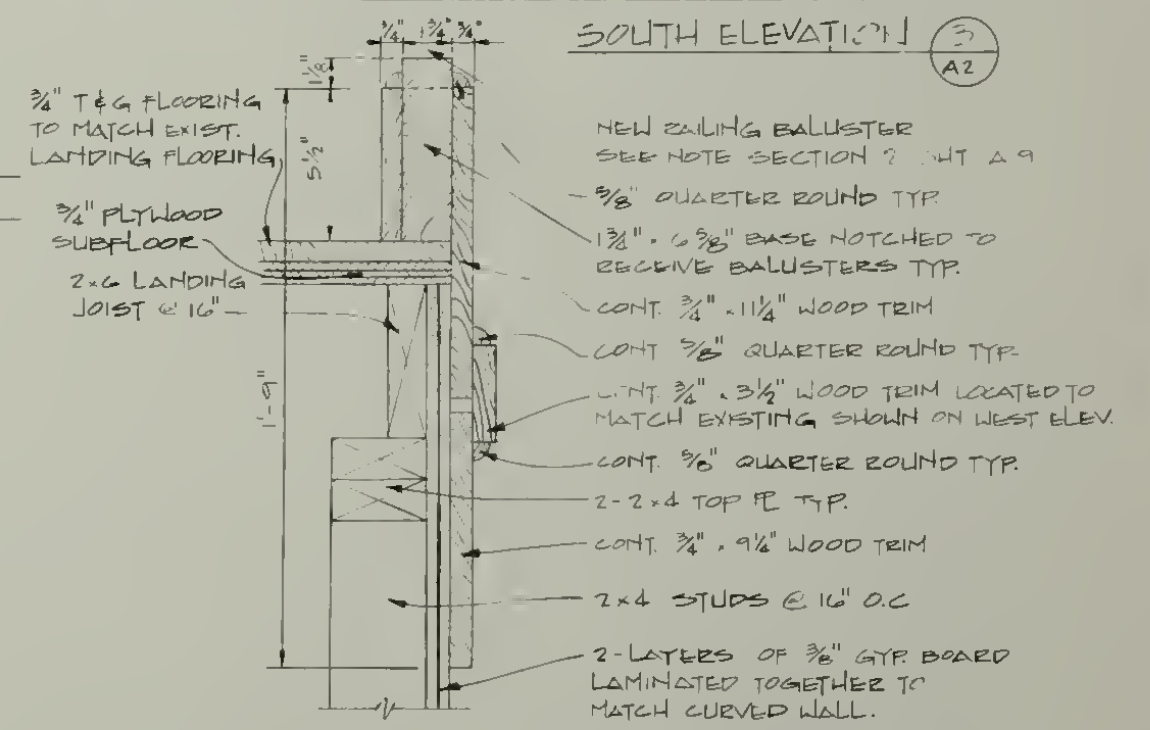 SOUTH ELEVATION
3
A2
3/4" 1 3/4" 3/4"
1 1/8"
5 1/2"
1'-9"
3/4" T & G FLOORING
TO MATCH EXIST.
LANDING FLOORING
3/4" PLYWOOD
SUBFLOOR
2×6 LANDING
JOIST @ 16"
NEW RAILING BALUSTER
SEE NOTE SECTION 2 SHT A 9
5/8" QUARTER ROUND TYP.
1 3/4" × 6 5/8" BASE NOTCHED TO
RECEIVE BALUSTERS TYP.
CONT. 3/4" × 11 1/4" WOOD TRIM
CONT 5/8" QUARTER ROUND TYP.
CONT. 3/4" × 3 1/2" WOOD TRIM LOCATED TO
MATCH EXISTING SHOWN ON WEST ELEV.
CONT. 5/8" QUARTER ROUND TYP.
2-2×4 TOP PL TYP.
CONT. 3/4" × 9 1/4" WOOD TRIM
2×4 STUDS @ 16" O.C
2-LAYERS OF 3/8" GYP. BOARD
LAMINATED TOGETHER TO
MATCH CURVED WALL.